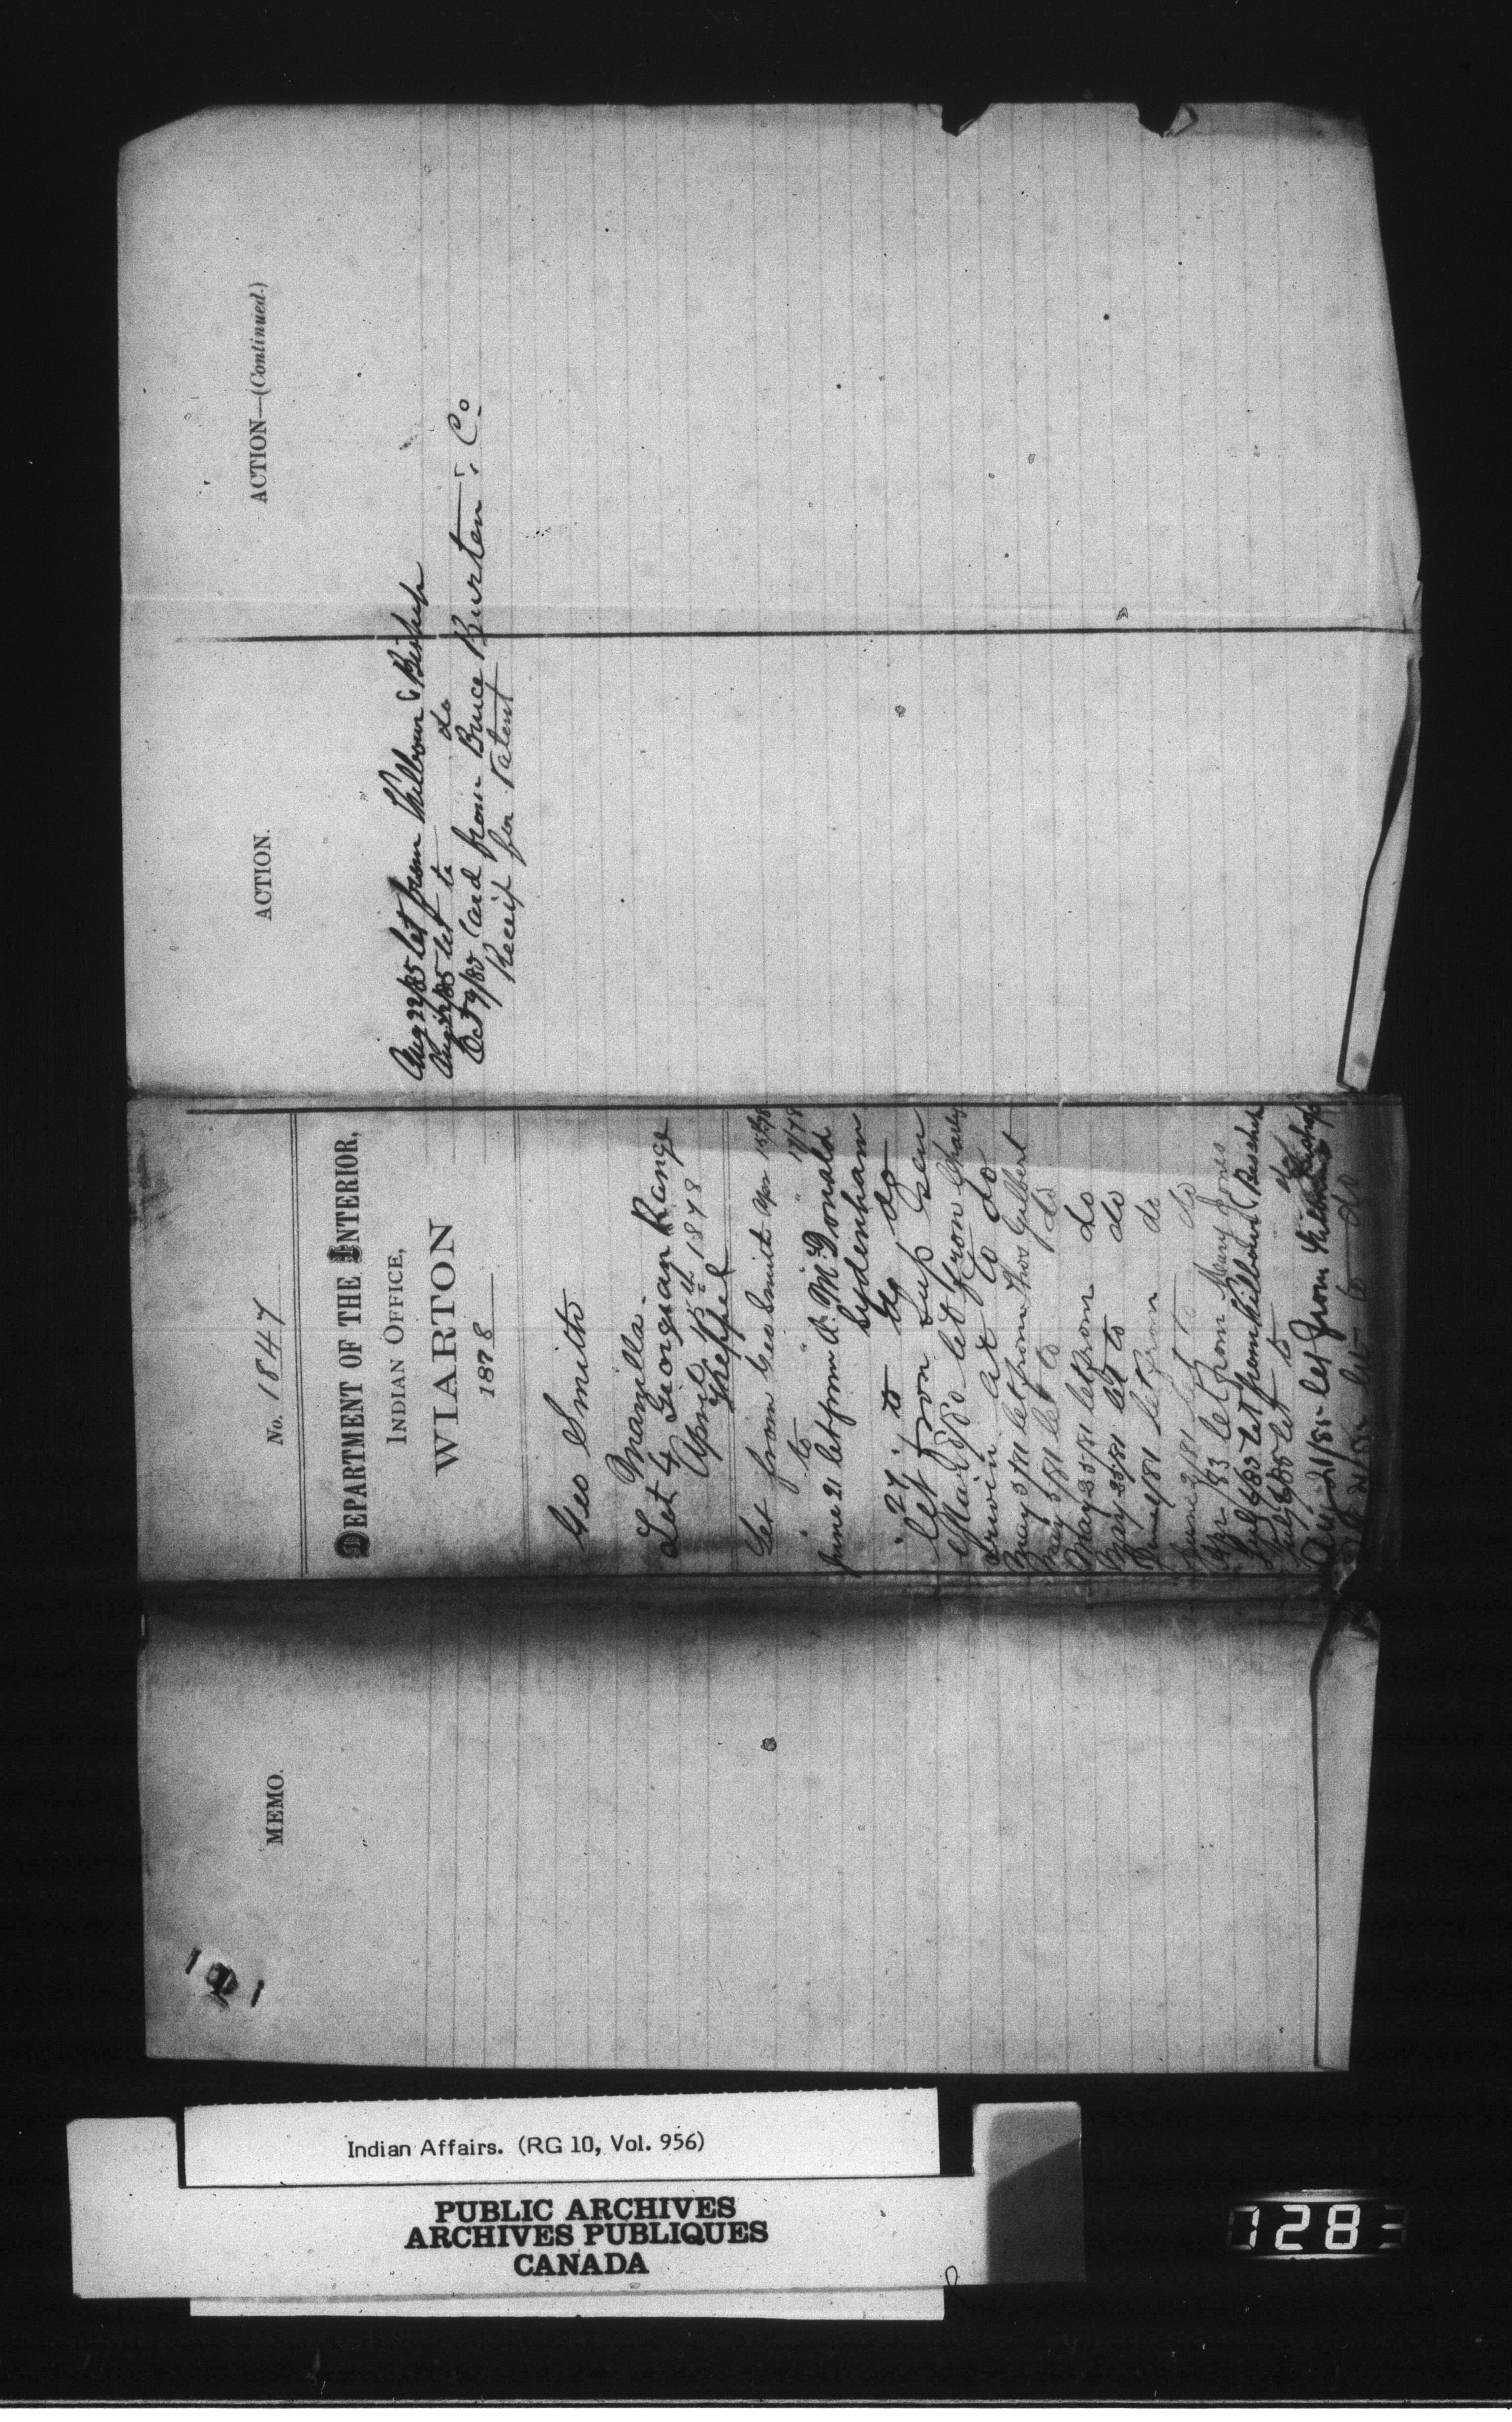 MEMO.
No. 1847
DEPARTMENT OF THE INTERIOR,
INDIAN OFFICE,
WIARTON
1878
Geo Smith
Manilla.
Lot 4 Georgian Range
April 15th 1878
Keppel
Let from Geo Smith Apr 15/78
" to " " 17/78
June 21 let from A. McDonald
Sydenham
" 27 " to do do
let from Sup Gen
Mar 8/80 let from Charles
Irwin at to do
May 3/81 let from Thos Gilbert
May 5/81 let to do
May 25/81 let from do
May 25/81 let to do
June 1/81 let from do
June 2/81 let to do
Apr /83 let from Mary Jones
July 6/85 let from Kilbourn & Bischop
July 6/85 let to do
Aug 21/85 let from Kilbourn & Bishop
21/85 let to do
ACTION.
Aug 22/85 let from Kilbourn & Bishop
Aug 22/85 let to do
Oct 9/85 Card from Bruce Burton & Co
Receipt for Patent
ACTION—(Continued.)
Indian Affairs. (RG 10, Vol. 956)
PUBLIC ARCHIVES
ARCHIVES PUBLIQUES
CANADA
1283